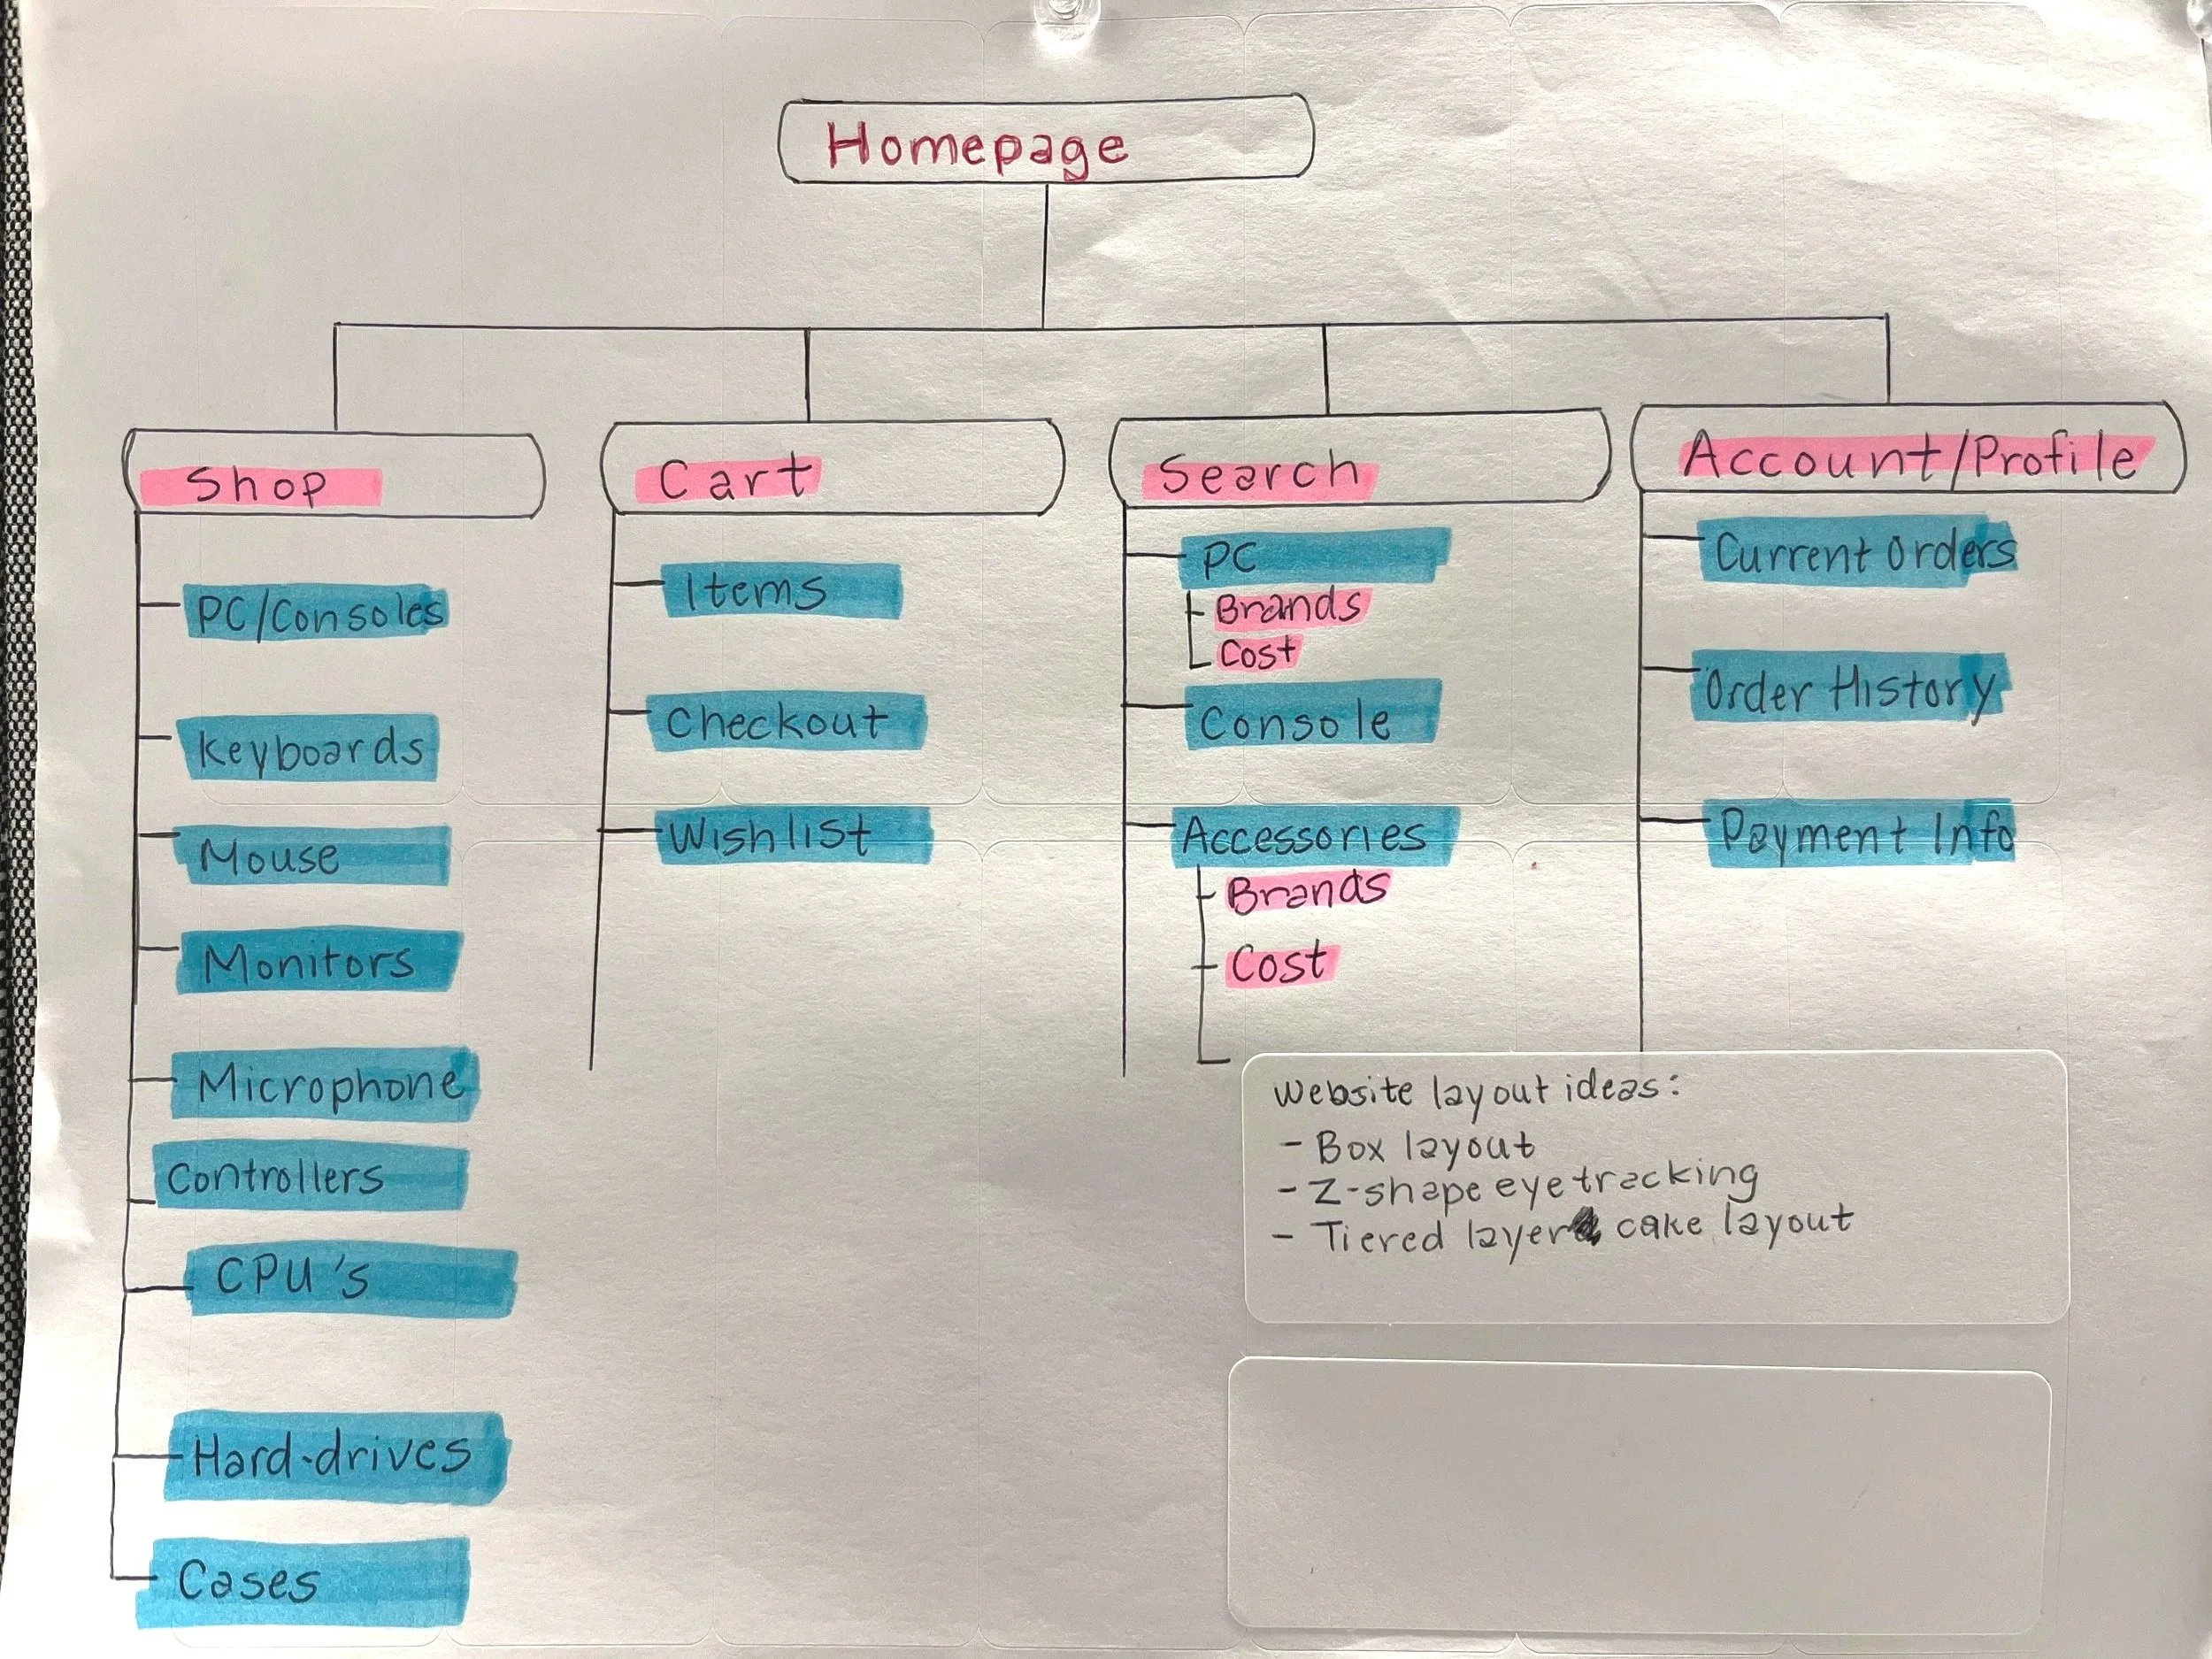 Homepage
Shop
PC/Consoles
Keyboards
Mouse
Monitors
Microphone
Controllers
CPU's
Hard-drives
Cases
Cart
Items
Checkout
Wishlist
Search
PC
Brands
Cost
Console
Accessories
Brands
Cost
Account/Profile
Current Orders
Order History
Payment Info
Website layout ideas:
- Box layout
- Z-shape eyetracking
- Tiered layer cake layout